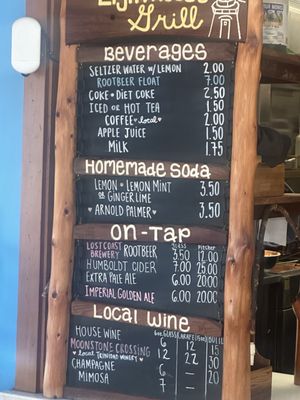 Lighthouse
Grill
Beverages
Seltzer Water w/ Lemon 2.00
Rootbeer Float 7.00
Coke • Diet Coke 2.50
Iced or Hot Tea 1.50
Coffee local 2.00
Apple Juice 1.50
Milk 1.75
Homemade Soda
Lemon • Lemon Mint 3.50
or Ginger Lime
Arnold Palmer 3.50
On-Tap
Glass Pitcher
Lost Coast Brewery Rootbeer 3.50 12.00
Humboldt Cider 7.00 25.00
Extra Pale Ale 6.00 20.00
Imperial Golden Ale 6.00 20.00
Local Wine
House Wine 6 12 15
Moonstone Crossing 12 22 30
local Trinidad Winery
Champagne 6 — 20
Mimosa 7 —